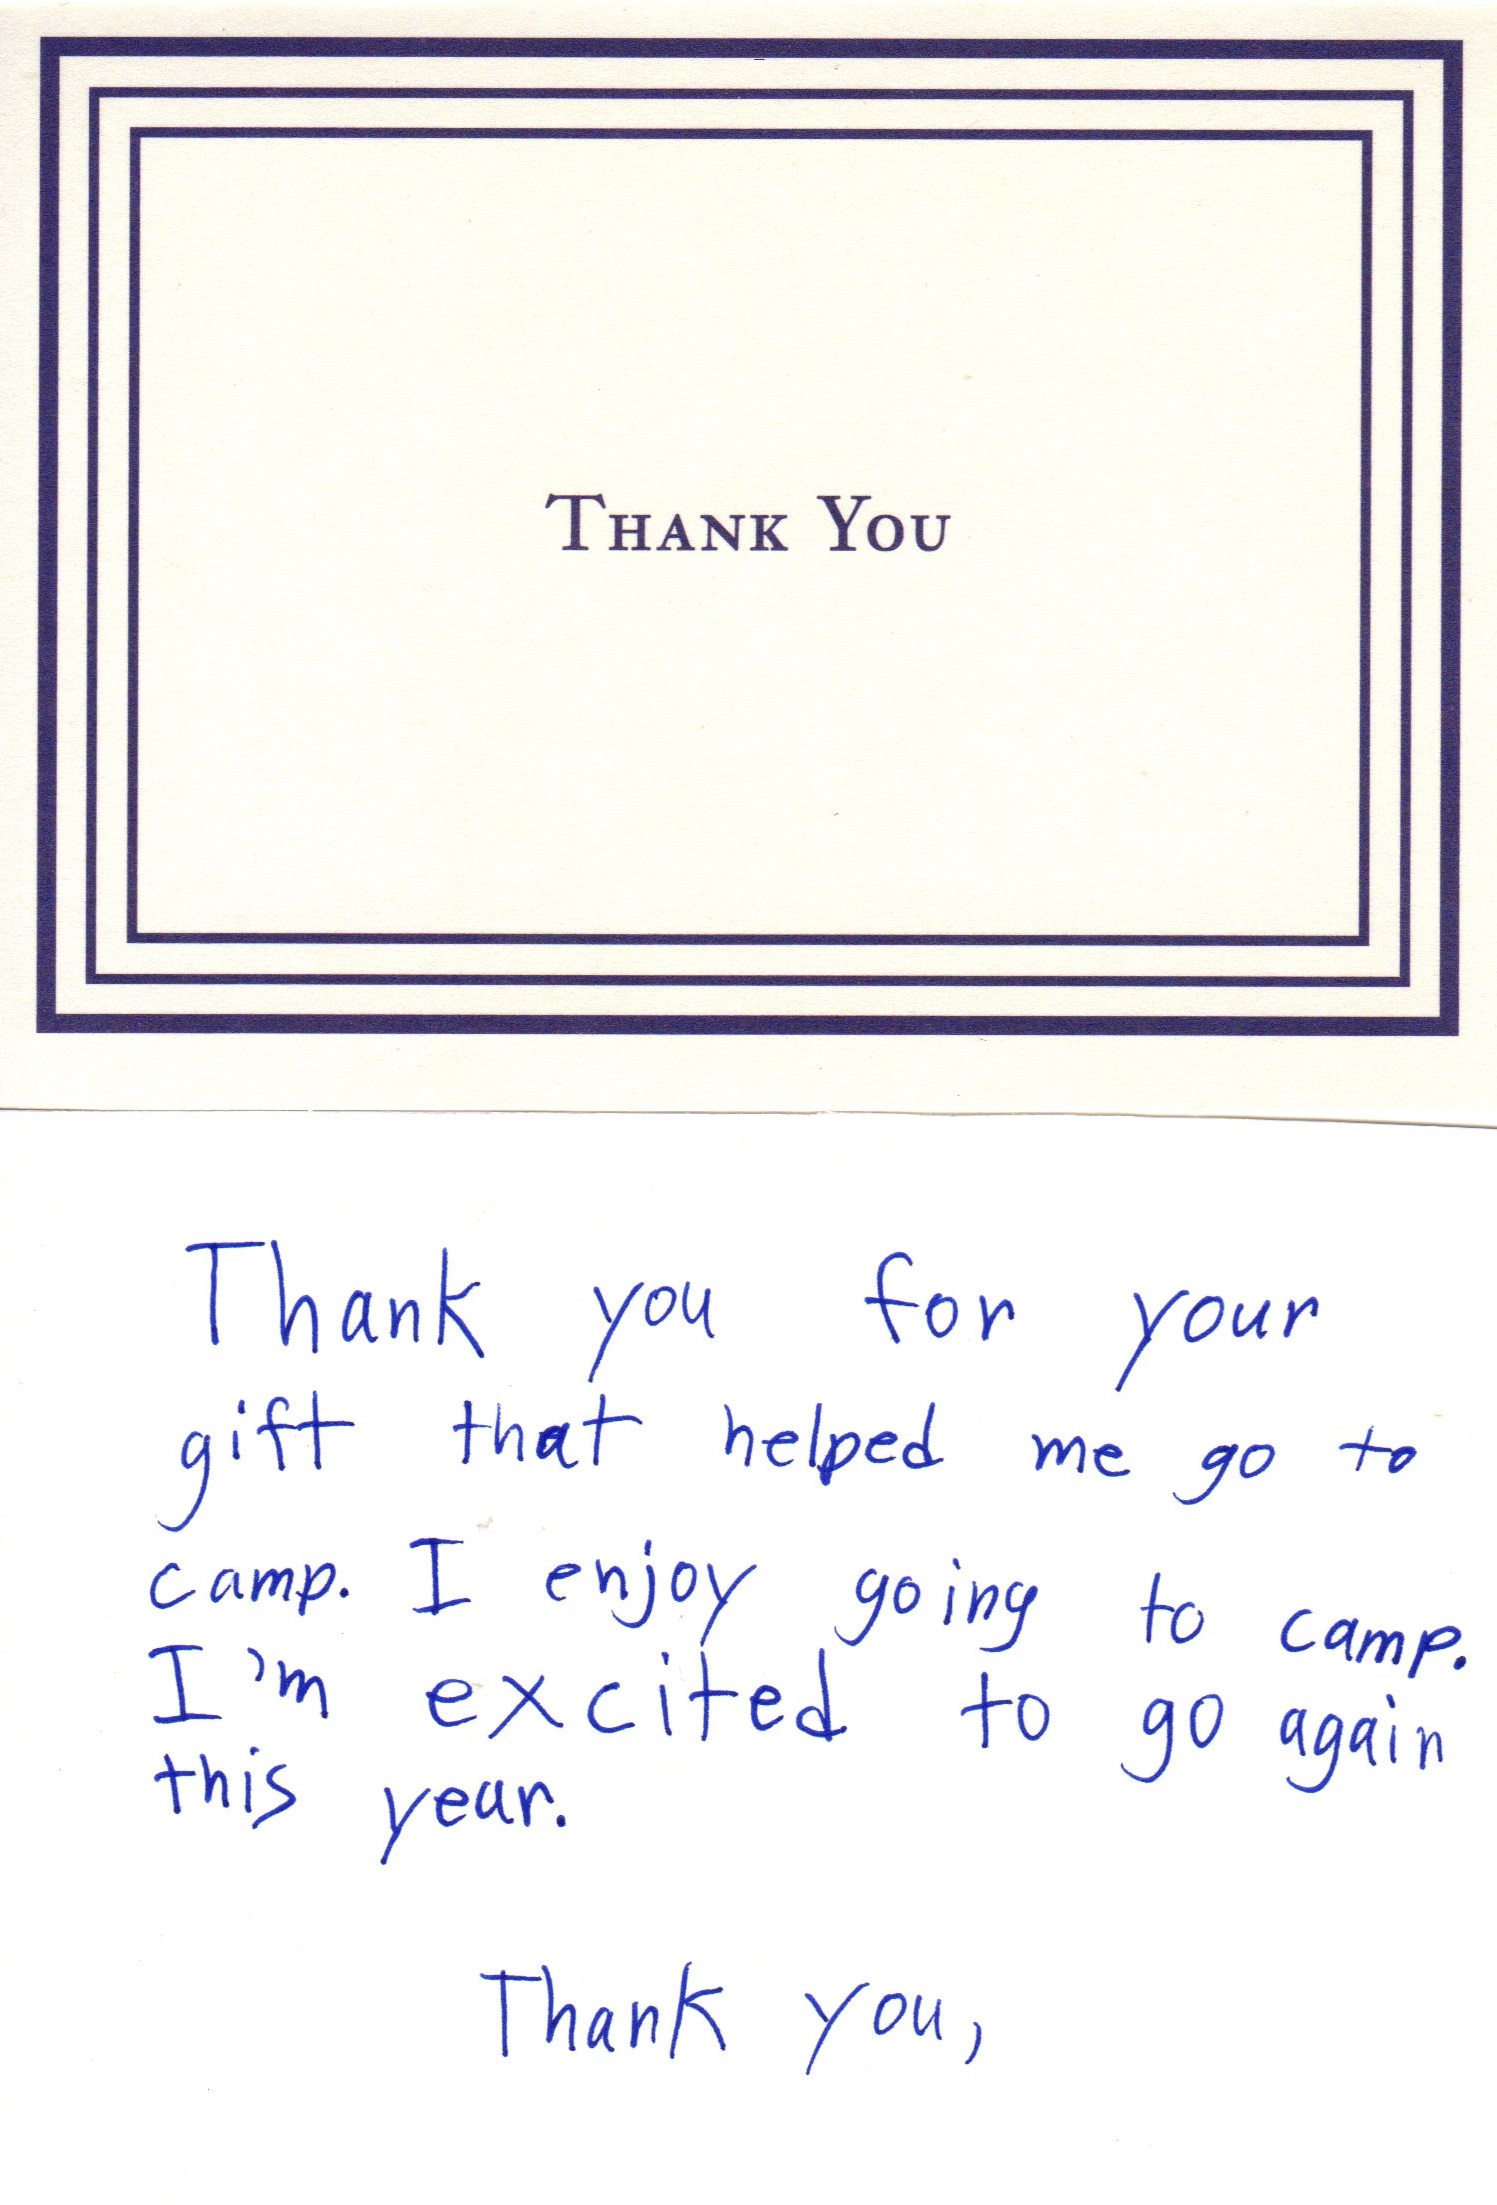 THANK YOU
Thank you for your
gift that helped me go to
camp. I enjoy going to camp.
I'm excited to go again
this year.
Thank you,